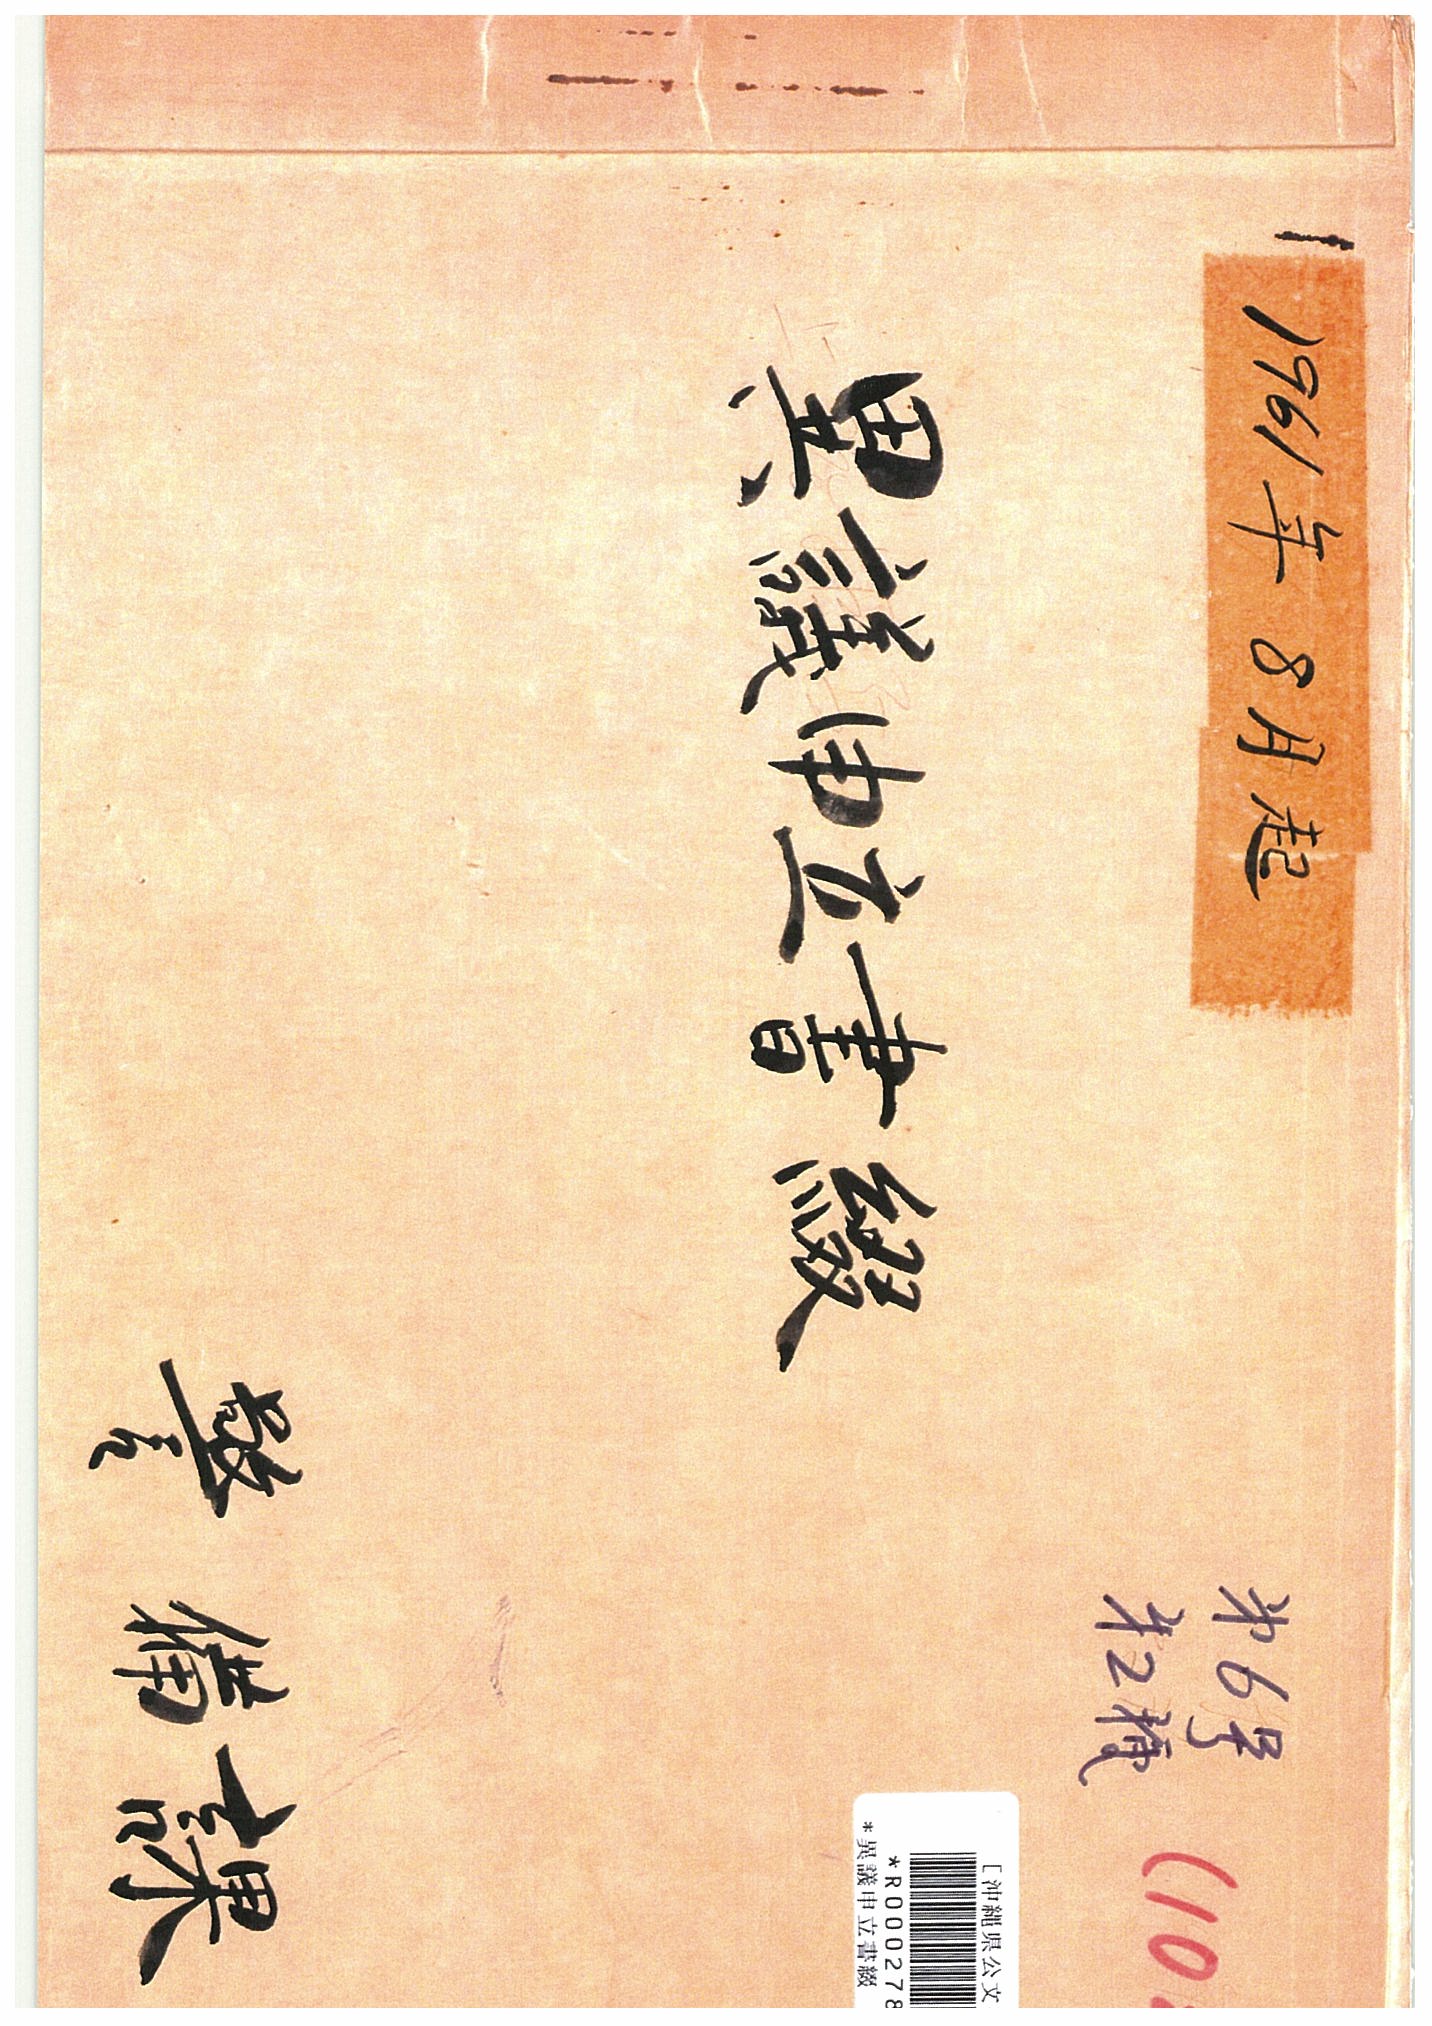 1961年8月起
第6号
第2種
(10
異議申立書綴
[沖縄県公文
*R0000278
*異議申立書綴
警備課